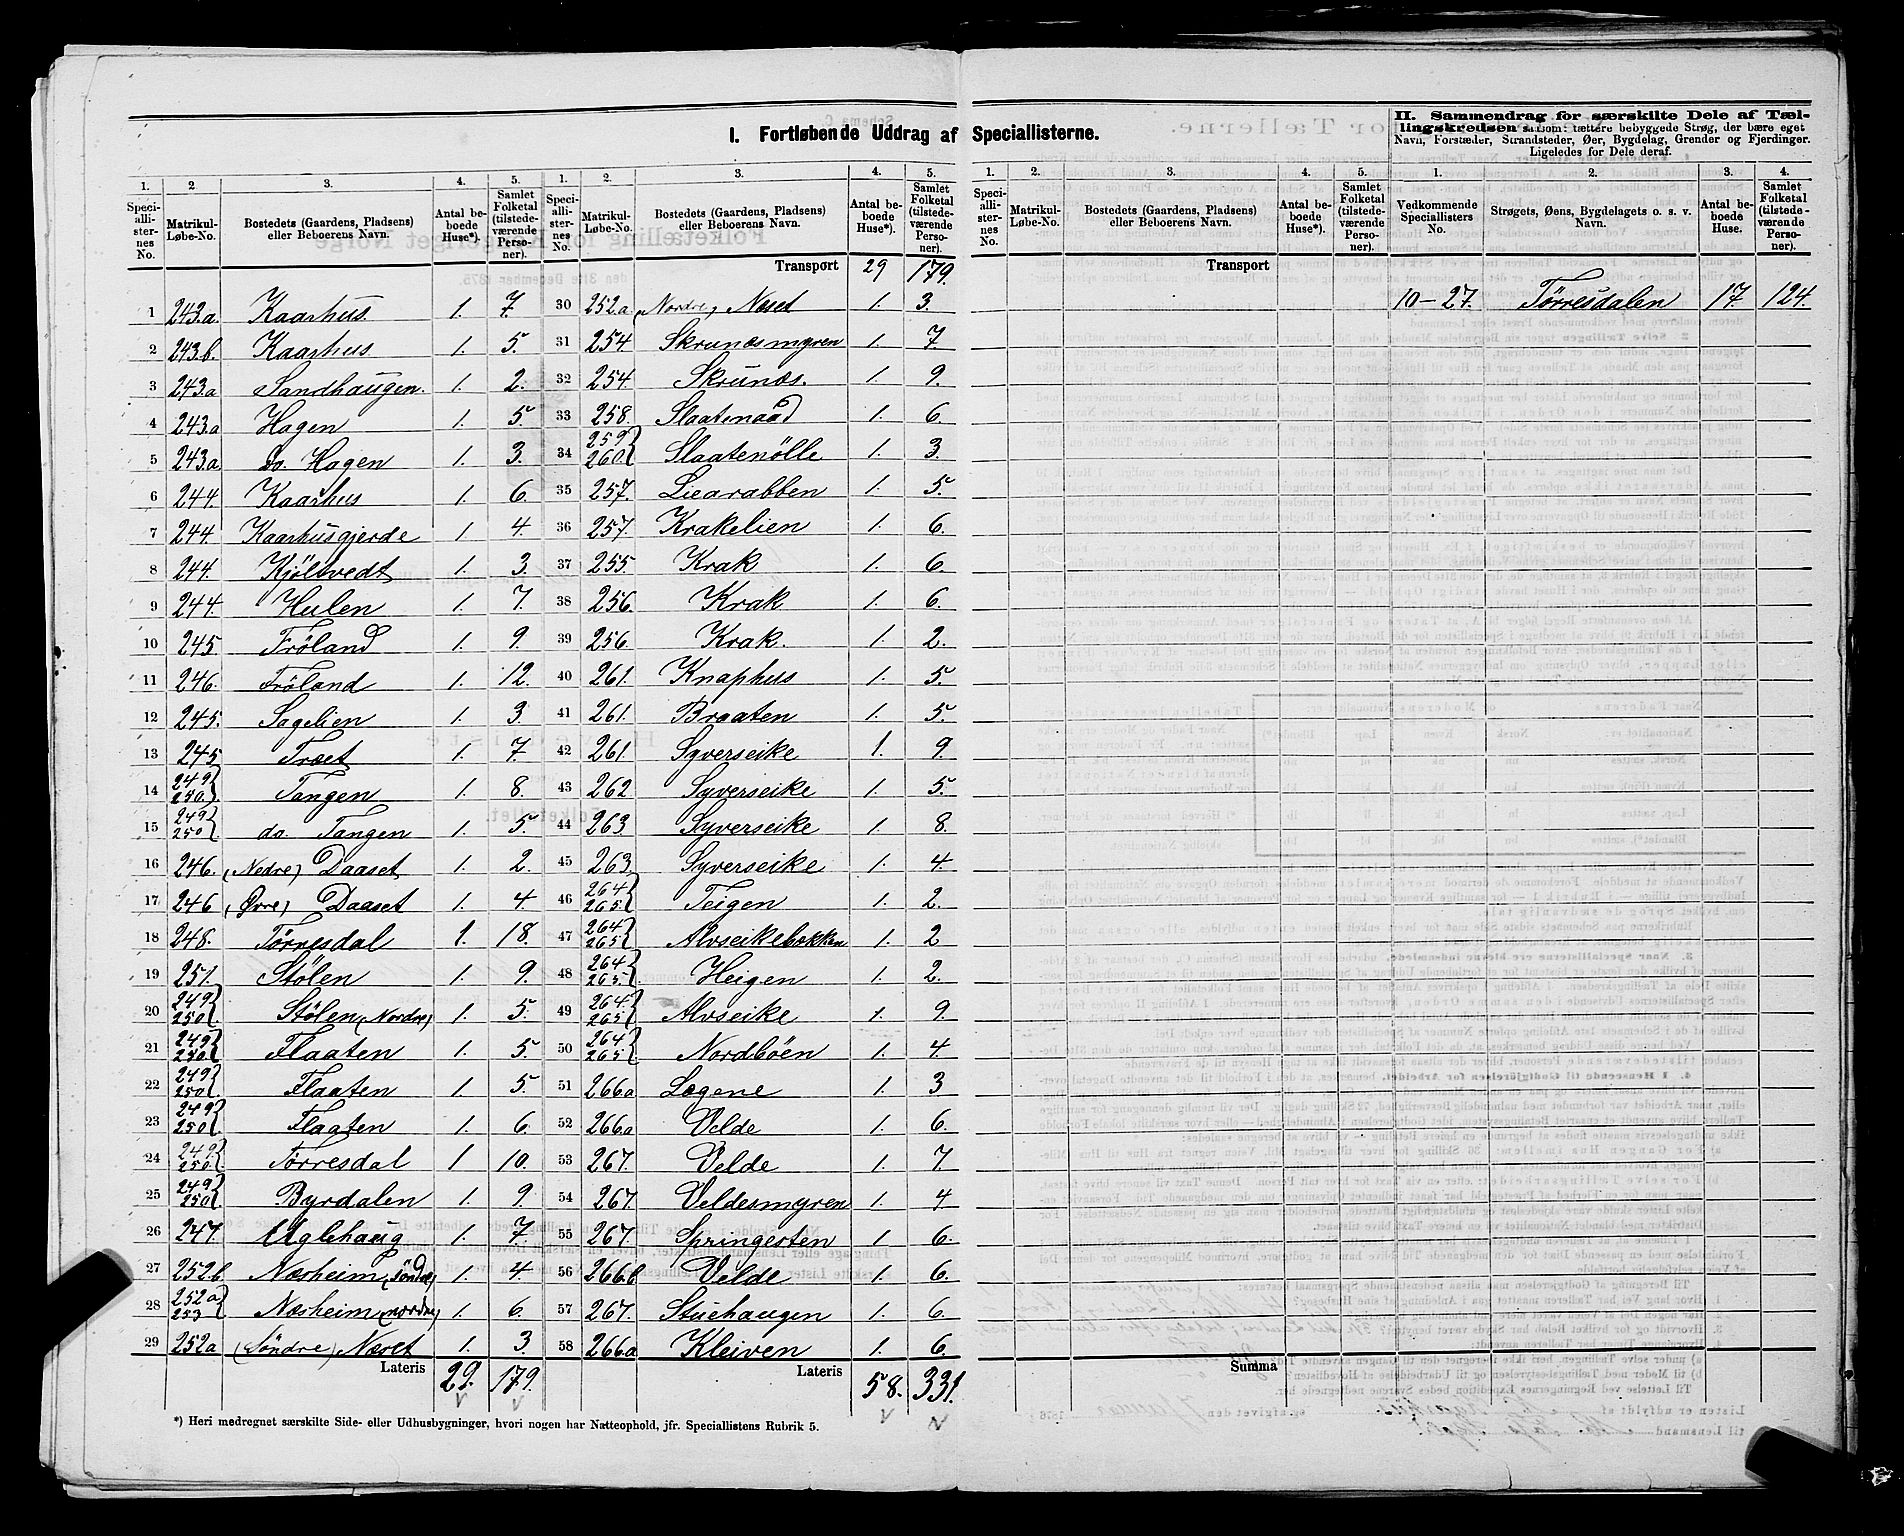 I. Fortløbende Uddrag af Speciallisterne.
II. Sammendrag for særskilte Dele af Tæl-
lingskredsen saasom: tættere bebyggede Strøg, der bære eget
Navn, Forstæder, Strandsteder, Øer, Bygdelag, Grender og Fjerdinger.
Ligeledes for Dele deraf.
1. 2. 3. 4. 5. 1. 2. 3. 4. 5. 1. 2. 3. 4. 5. 1. 2. 3. 4.
Speciallisternes No. Matrikul-Løbe-No. Bostedets (Gaardens, Pladsens) eller Beboerens Navn. Antal beboede Huse*). Samlet Folketal (tilstedeværende Personer).
Speciallisternes No. Matrikul-Løbe-No. Bostedets (Gaardens, Pladsens) eller Beboerens Navn. Antal beboede Huse*). Samlet Folketal (tilstedeværende Personer).
Speciallisternes No. Matrikul-Løbe-No. Bostedets (Gaardens, Pladsens) eller Beboerens Navn. Antal beboede Huse*). Samlet Folketal (tilstedeværende Personer).
Vedkommende Speciallisters No. Strøgets, Øens, Bygdelagets o. s. v. Navn. Antal beboede Huse. Samlet Folketal (tilstedeværende Personer).
Transport 29 179.
Transport
1 243.a. Kaarhus. 1. 7.
2 243.b. Kaarhus. 1. 5.
3 243.a Sandhaugen. 1. 2.
4 243.a Hagen 1. 5.
5 243.a do. Hagen 1. 3.
6 244. Kaarhus 1. 6.
7 244. Kaarhusgjerde 1 4.
8 244. Kjölsvedt 1. 3.
9 244. Hulen 1. 7.
10 245. Fröland 1. 9.
11 246. Fröland 1. 12.
12 245. Sagelien 1. 3.
13 245 Træet 1. 7.
14 249 250. Tangen 1. 8.
15 249 250 do. Tangen 1. 5.
16 246. (Nedre) Daaset 1. 2.
17 246 (Øvre) Daaset 1. 4.
18 248. Törresdal 1. 18.
19 251. Stölen 1. 9.
20 249 250 Stölen (Nordre) 1. 5.
21 249 250. Flaaten 1. 5.
22 249 250. Flaaten 1. 5.
23 249 250 Flaaten 1. 6.
24 249. 250. Törresdal 1 10.
25 249 250 Byrdalen 1. 9
26 247. Uglehaug 1. 7
27 252.b Næsheim (söndre) 1. 4.
28 252a 253 Næsheim (nordre) 1. 6.
29 252a (Söndre) Næset 1. 3.
Lateris 29. 179.
30 252.a (Nordre) Næset 1. 3.
31 254 Skrunæsmyren 1. 7.
32 254. Skrunæs. 1. 9.
33 258. Slaatenaad 1. 6.
34 259 260. Slaatenölle 1. 3.
35 257. Liearabben 1. 5.
36 257. Krakelien 1. 6.
37 255. Krak 1. 6.
38 256. Krak 1. 6.
39 256. Krak. 1. 2.
40 261. Knaphus 1. 5.
41 261. Braaten 1. 5.
42 261. Syverseike 1. 9.
43 262 Syverseike 1. 5.
44 263 Syverseike 1. 8.
45 263. Syverseike 1. 4.
46 264 265. Teigen 1. 2.
47 264 265 Alvseikebakken 1. 2
48 264 265. Heigen 1. 2.
49 264. 265 Alvseike 1. 9.
50 264 265 Nordböen 1. 4
51 266a Lægene 1. 3
52 266a Velde 1. 6.
53 267. Velde 1. 7
54 267. Veldesmyren 1. 4
55 267. Springesten 1. 6.
56 266.b Velde 1. 6.
57 267. Stuehaugen 1. 6.
58 266a Kleiven 1. 6.
Lateris 58. 331.
Summa
10-27. Törresdalen 17 124.
*) Heri medregnet særskilte Side- eller Udhusbygninger, hvori nogen har Natteophold, jfr. Speciallistens Rubrik 5.